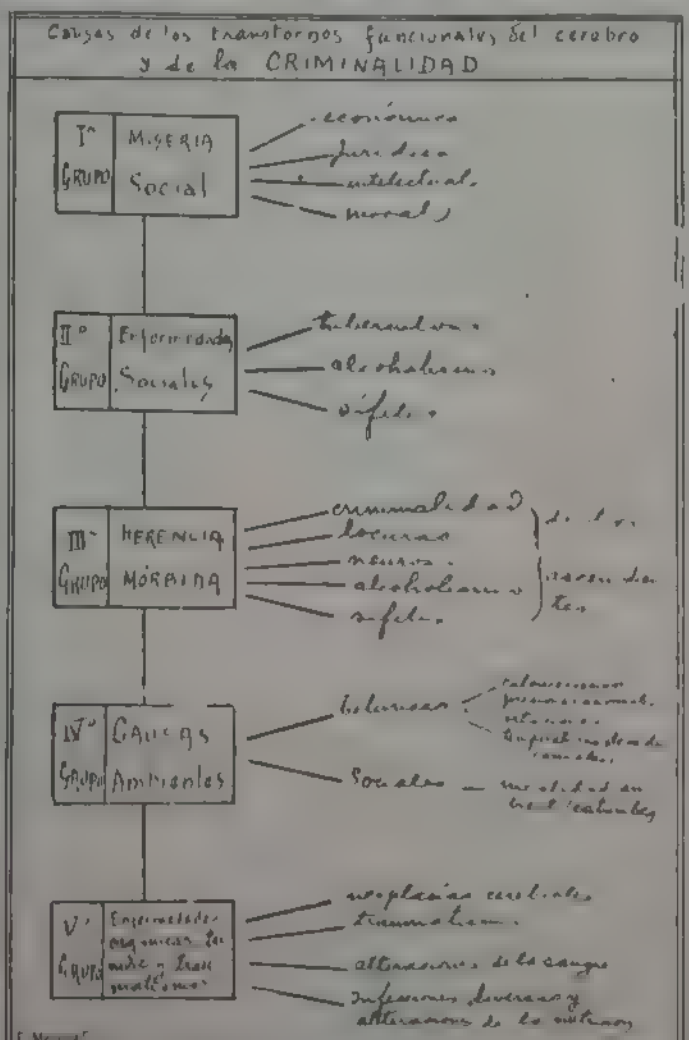 Causas de los transtornos funcionales del cerebro
y de la CRIMINALIDAD
Iº GRUPO
MISERIA Social
económica
jurídica
intelectual
moral
IIº GRUPO
Enfermedades Sociales
tuberculosis
alcoholismo
sífilis
III GRUPO
HERENCIA MÓRBIDA
criminalidad
locuras
neurosis
alcoholismo
sífilis
de los
ascendientes
IVº GRUPO
CAUCAS Ambientes
Sociales
Vº GRUPO
Enfermedades
neoplasias cerebrales
traumatismo
alteraciones de la sangre
Infecciones diversas y
alteraciones de la